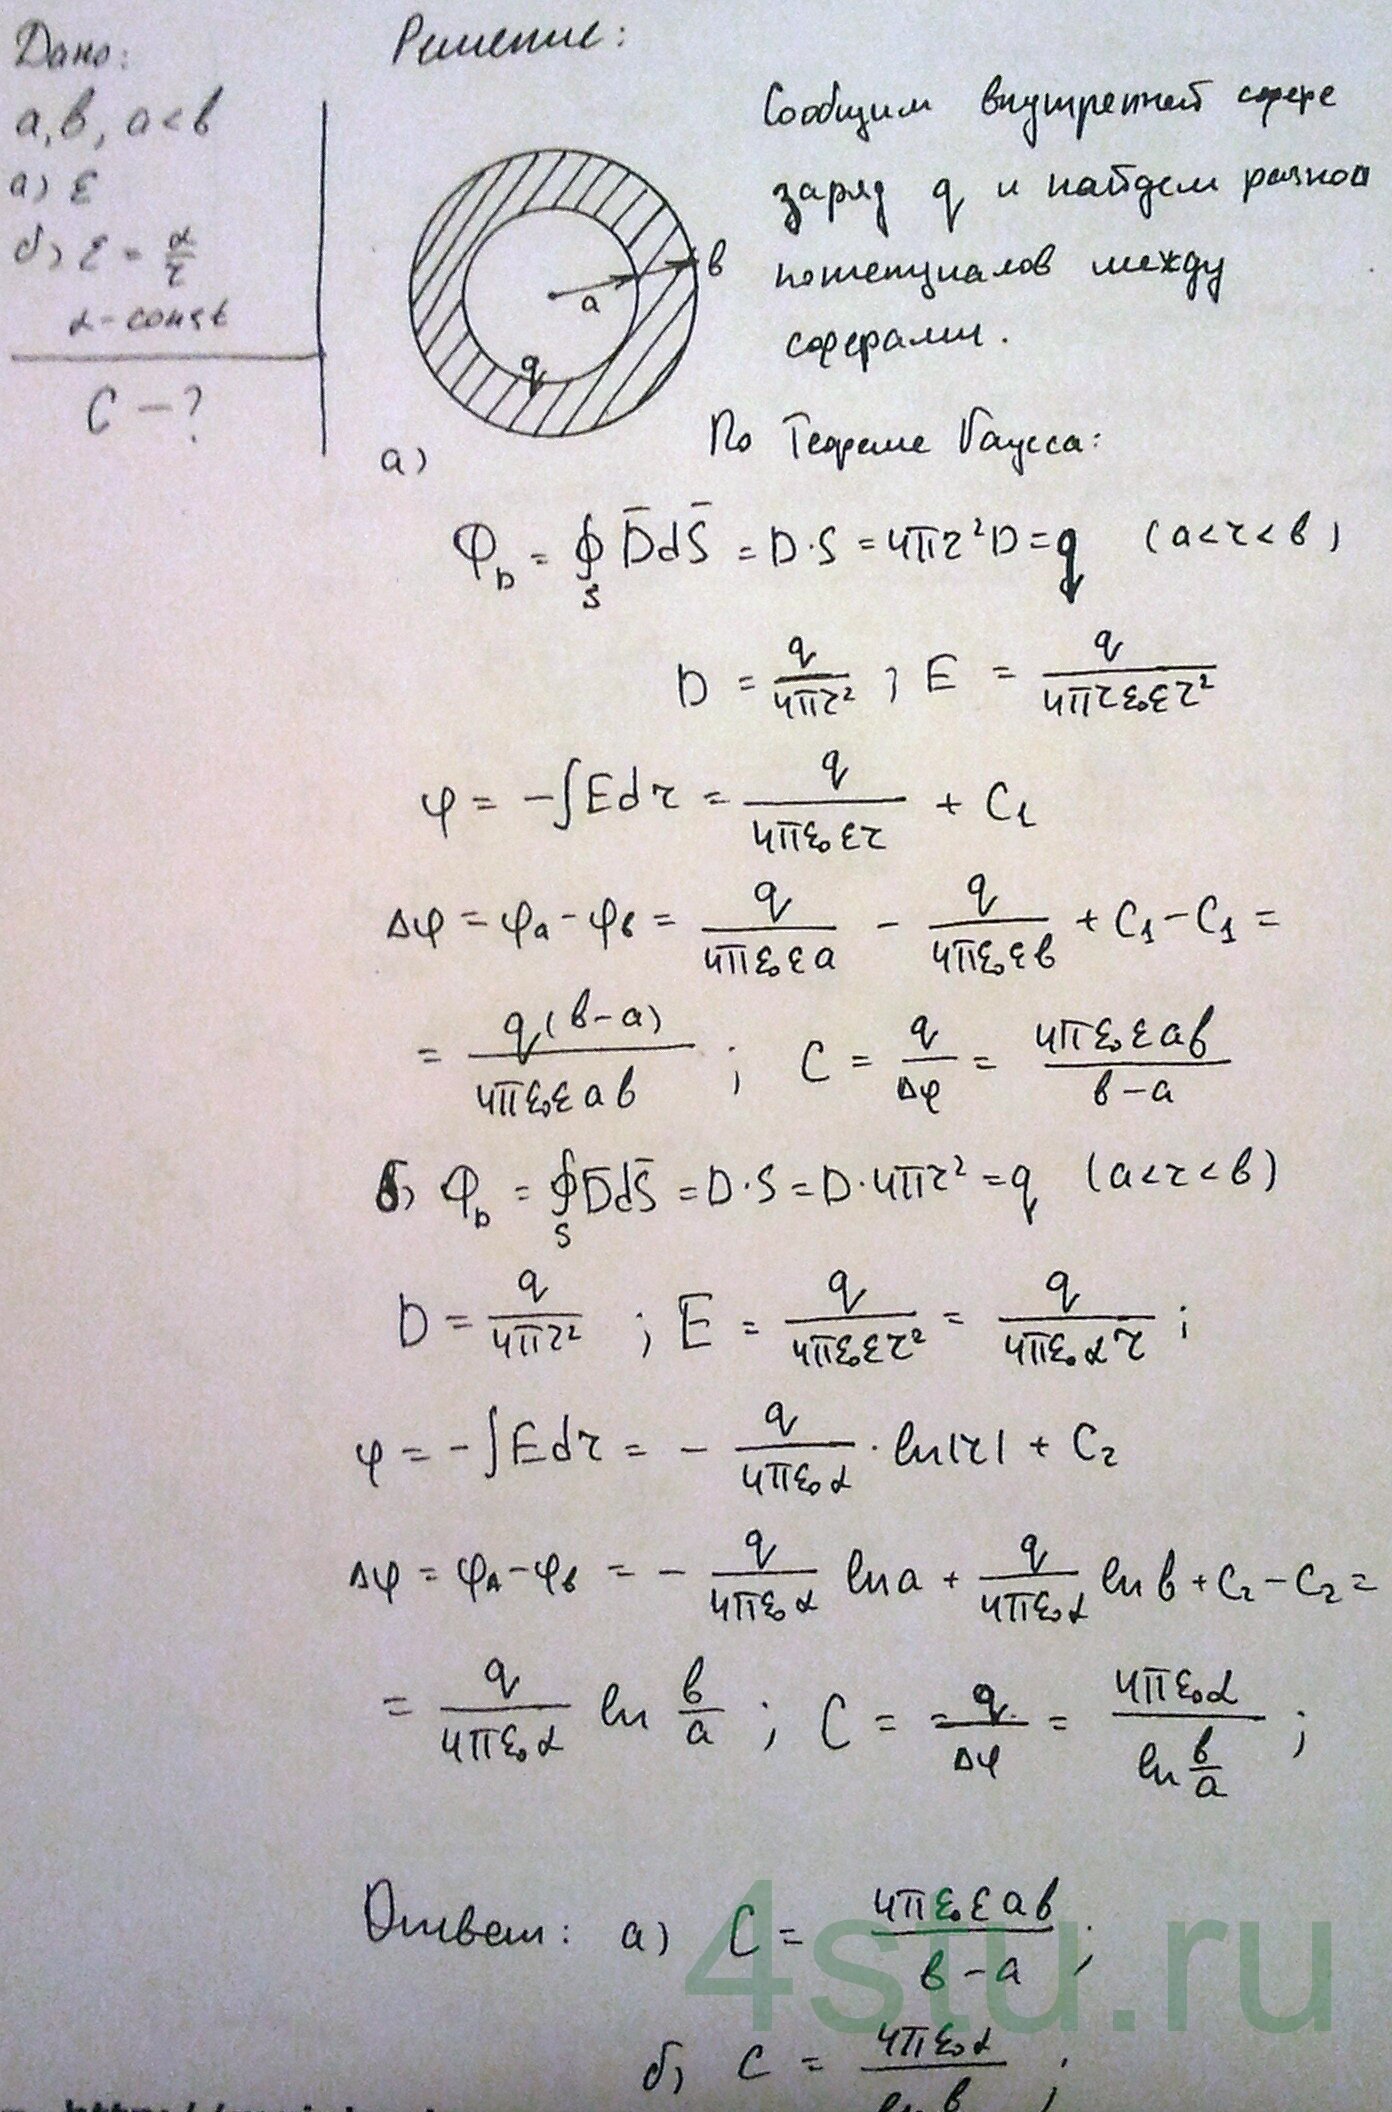 Дано:
a, b, a<b
а) ε
б) ε = α/r
α - const
C - ?
Решение:
Сообщим внутренней сфере
заряд q и найдем разнос
потенциалов между
сферами.
a
b
q
а)
По Теореме Гаусса:
Φ_D = ∮_S D̄dS̄ = D·S = 4πr²D = q (a<r<b)
D = q/4πr² ; E = q/4πrε₀εr²
φ = -∫Edr = q/4πε₀εr + C₁
Δφ = φa - φb = q/4πε₀εa - q/4πε₀εb + C₁ - C₁ =
= q(b-a)/4πε₀εab ; C = q/Δφ = 4πε₀εab/b-a
б) Φ_D = ∮_S D̄dS̄ = D·S = D·4πr² = q (a<r<b)
D = q/4πr² ; E = q/4πε₀εr² = q/4πε₀αr ;
φ = -∫Edr = - q/4πε₀α · ln|r| + C₂
Δφ = φA - φb = - q/4πε₀α ln a + q/4πε₀α ln b + C₂ - C₂ =
= q/4πε₀α ln b/a ; C = = q/Δφ = 4πε₀α/ln b/a ;
Ответ: а) C = 4πε₀εab/b-a ;
б) C = 4πε₀α/ln b ;
4stu.ru